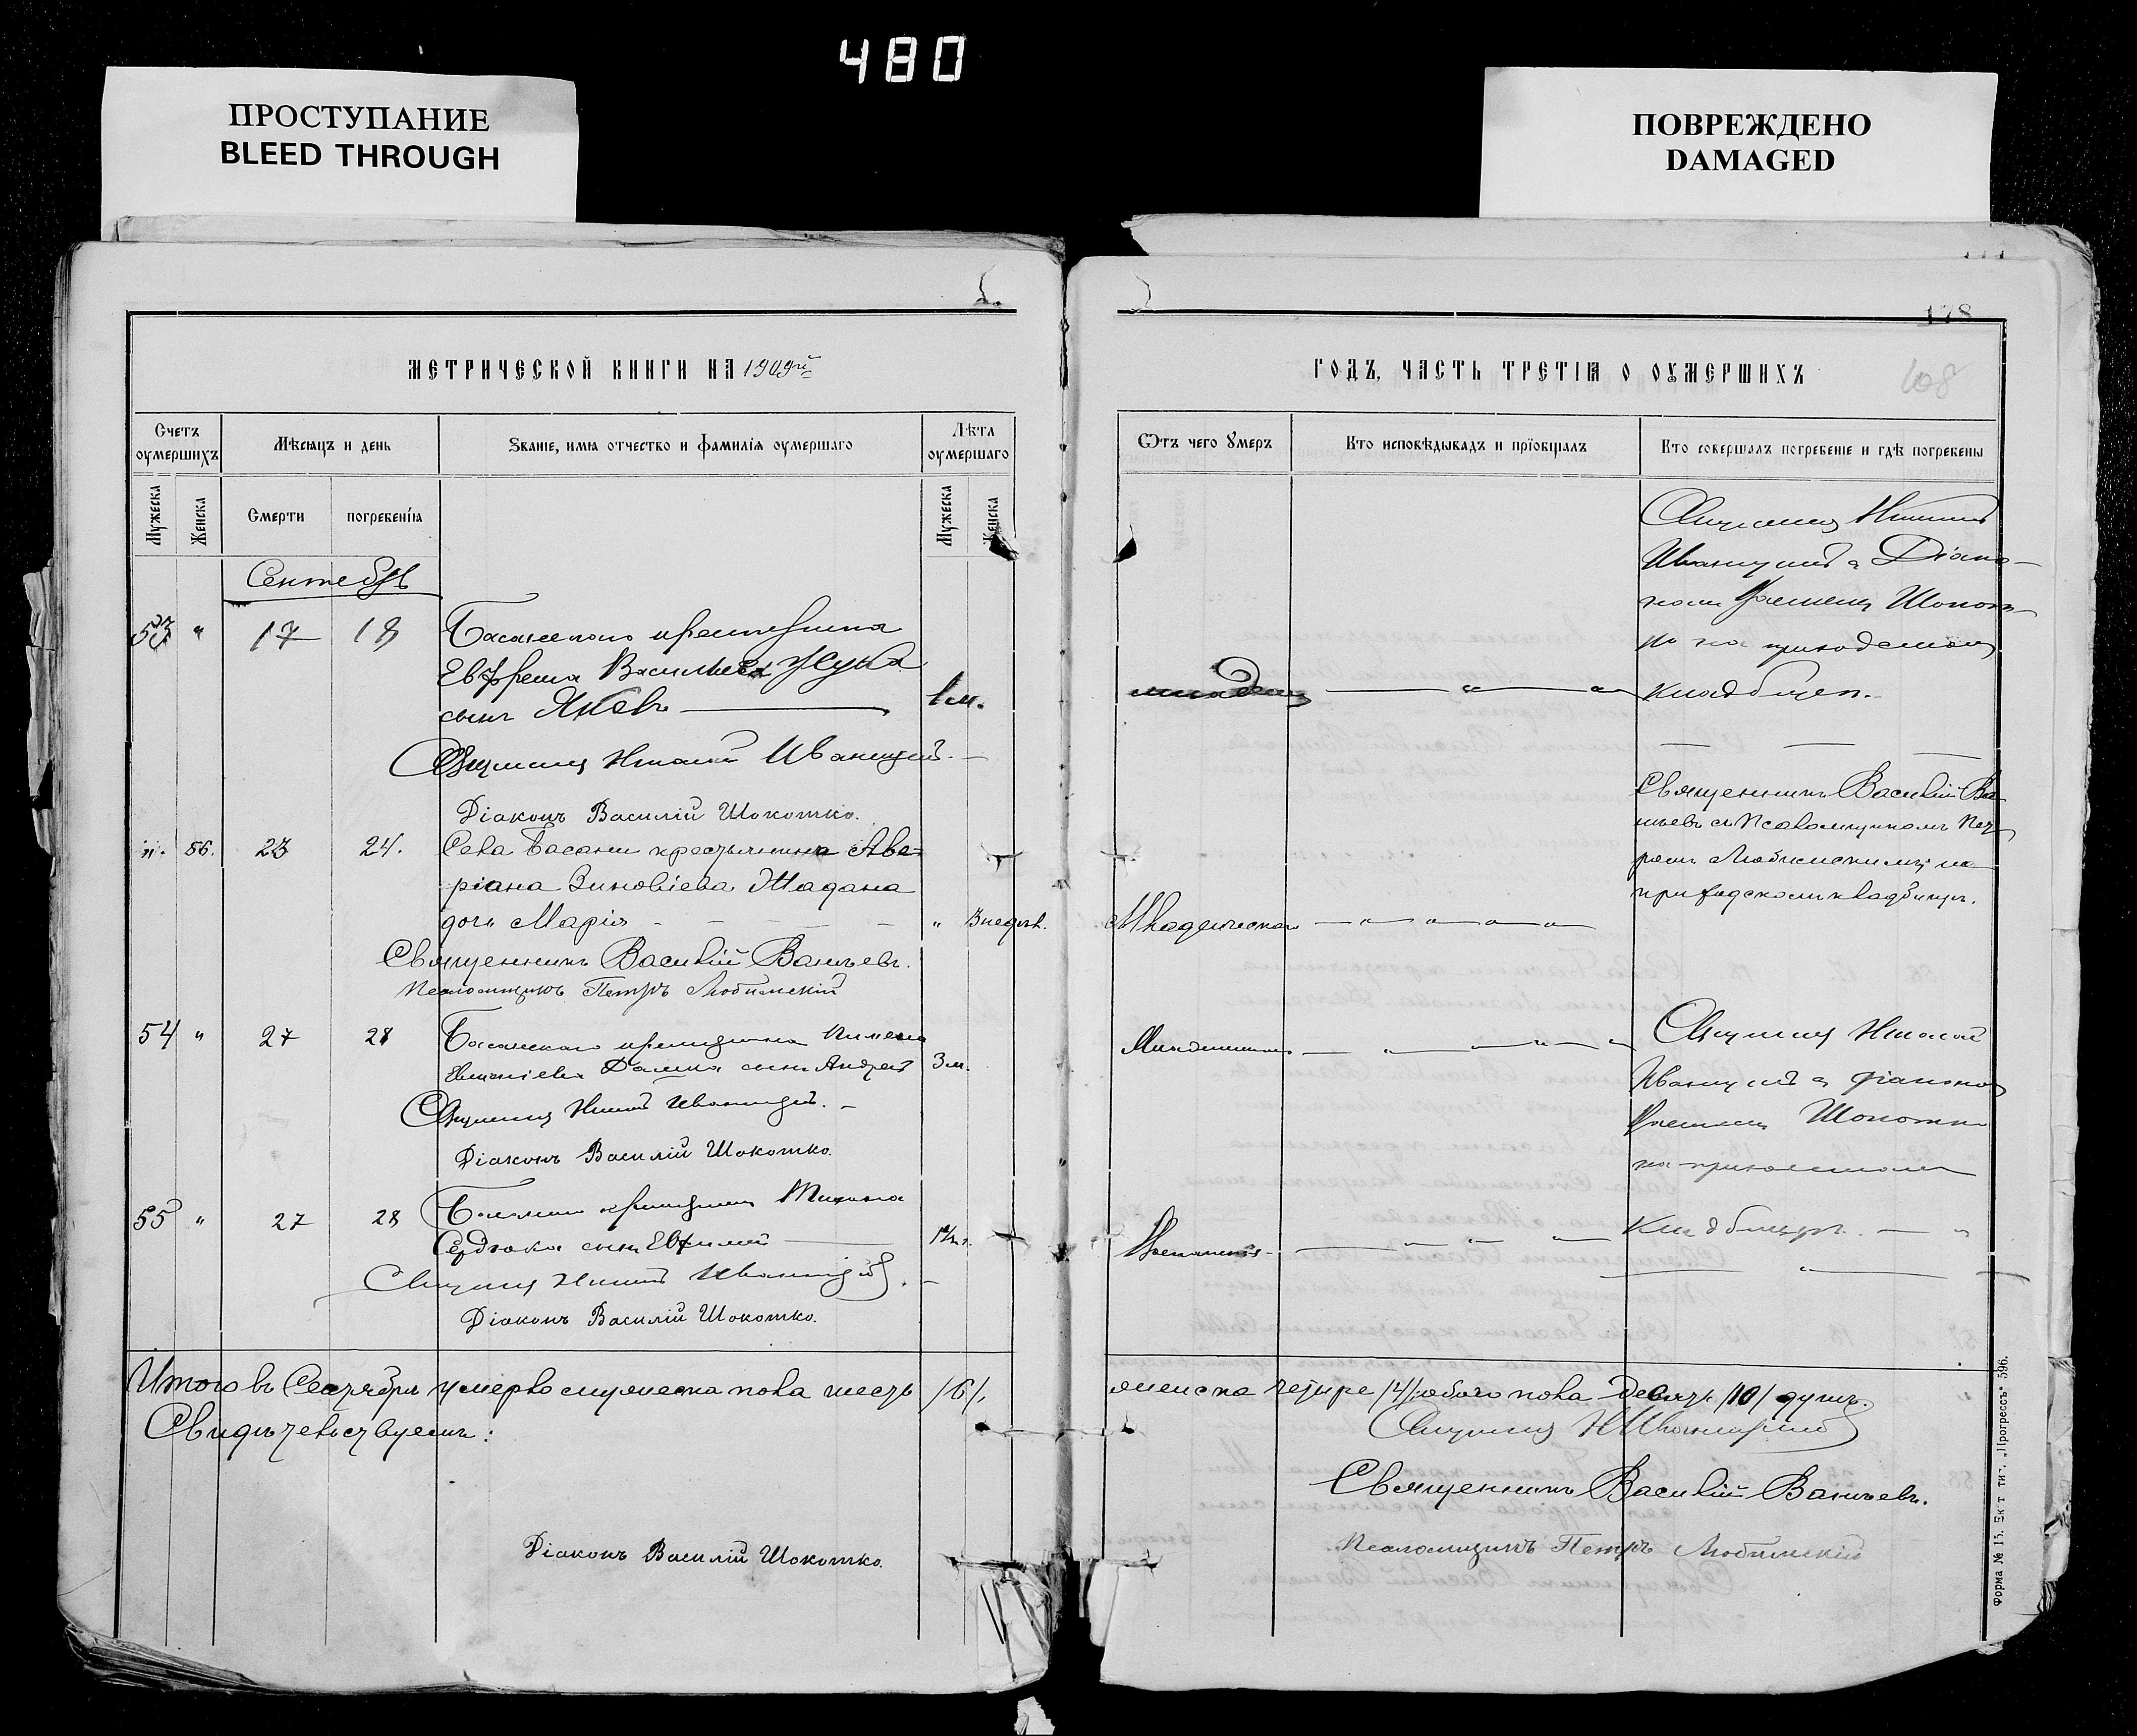 480
ПРОСТУПАНИЕ
BLEED THROUGH
ПОВРЕЖДЕНО
DAMAGED
178
108
МЕТРИЧЕСКОЙ КНИГИ НА 1909й
ГОДЪ, ЧАСТЬ ТРЕТІЯ О ОУМЕРШИХЪ
Счетъ оумершихъ
Мѣсяцъ и день
Званіе, имя отчество и фамилія оумершаго
Лѣта оумершаго
Мужеска
Женска
Смерти
погребенія
Мужеска
Женска
Отъ чего умеръ
Кто исповѣдывалъ и пріобщалъ
Кто совершалъ погребеніе и гдѣ погребены
Сентябрь
53 " 17 18
Басанского крестьянина
Евфрема Васильева Жука
сынъ Яковъ 1 м.
Священникъ Николай Иваницкій
Діаконъ Василій Шокотко.
младенч
Священникъ Николай
Иваницкій съ Діако-
номъ Василіемъ Шокот-
ко на приходскомъ
кладбищѣ.
". 86. 23 24.
Села Басани крестьянина Аве-
ріана Зиновіева Жадана
дочь Марія " 3 недѣл.
Священникъ Василій Ваньевъ.
Псаломщикъ Петръ Любимскій
Младенческая
Священникъ Василій Ва-
ньевъ съ Псаломщикомъ Пет-
ромъ Любимскимъ на
приходскомъ кладбищѣ.
54 " 27 28
Басанского крестьянина Пимена
Евменіева сынъ Андрей 3 м.
Священникъ Николай Иваницкій.
Діаконъ Василій Шокотко.
Священникъ Николай
Иваницкій съ діакономъ
Василіемъ Шокотко
на приходскомъ
кладбищѣ.
55 " 27 28
Басанского крестьянина
Сердюка сынъ Евфимій
Священникъ Николай Иваницкій.
Діаконъ Василій Шокотко.
Итого въ Сентябрѣ умерло мужеска пола шесть /6/,
женска четыре /4/, обоего пола десять /10/ душъ.
Свидѣтельствуемъ:
Священникъ Н Иваницкій
Священникъ Василій Ваньевъ.
Діаконъ Василій Шокотко.
Псаломщикъ Петръ Любимскій
Форма № 15. Ек т тип. „Прогрессъ" 596.